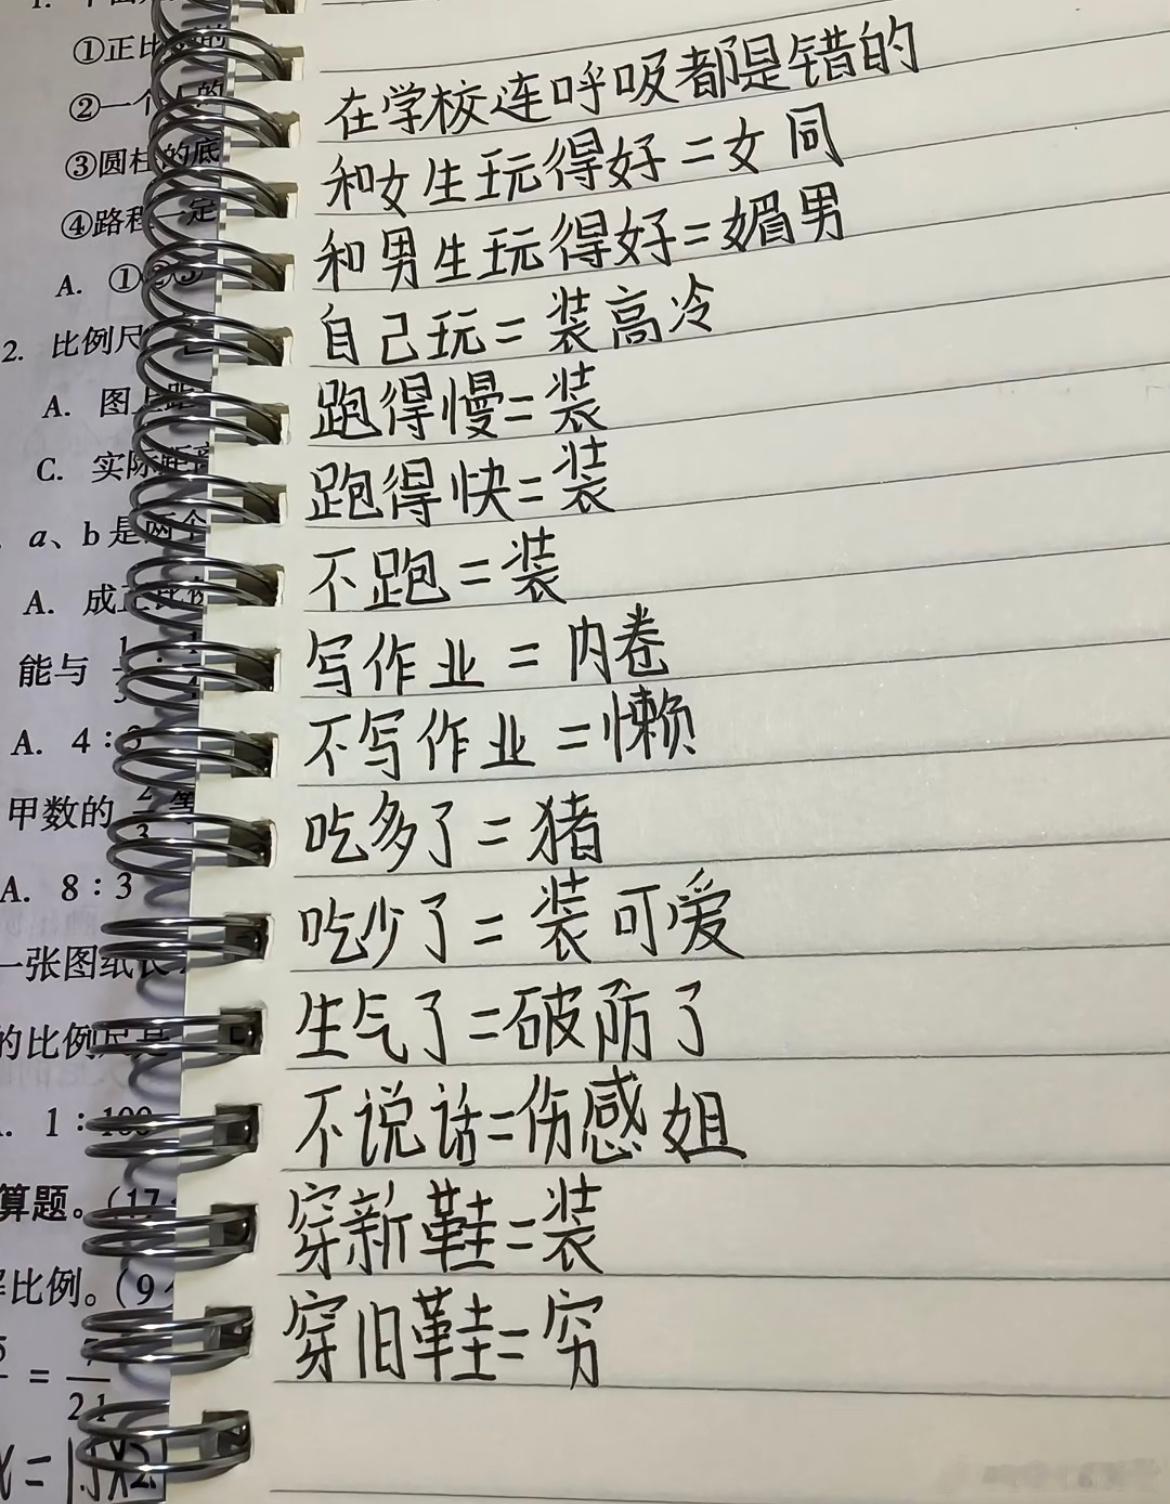 ①正比
②一个
③圆柱的底
④路程一定
A. ①②③
2. 比例尺
A. 图上距
C. 实际距离
a、b是两个
A. 成正比例
能与
A. 4:
甲数的 2/3 等
A. 8:3
一张图纸长
的比例尺是
1:100
算题。(17
解比例。(9
= 7/21
在学校连呼吸都是错的
和女生玩得好=女同
和男生玩得好=媚男
自己玩=装高冷
跑得慢=装
跑得快=装
不跑=装
写作业=内卷
不写作业=懒
吃多了=猪
吃少了=装可爱
生气了=破防了
不说话=伤感姐
穿新鞋=装
穿旧鞋=穷